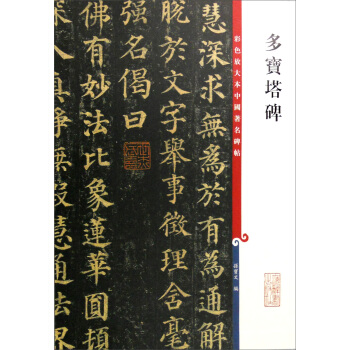 多寶塔碑
彩色放大本中國著名碑帖
孫寶文 編
慧深求無為於有為通
脫於文字舉事徵理含毫
強名偈曰
佛有妙法比象蓮華圓頓